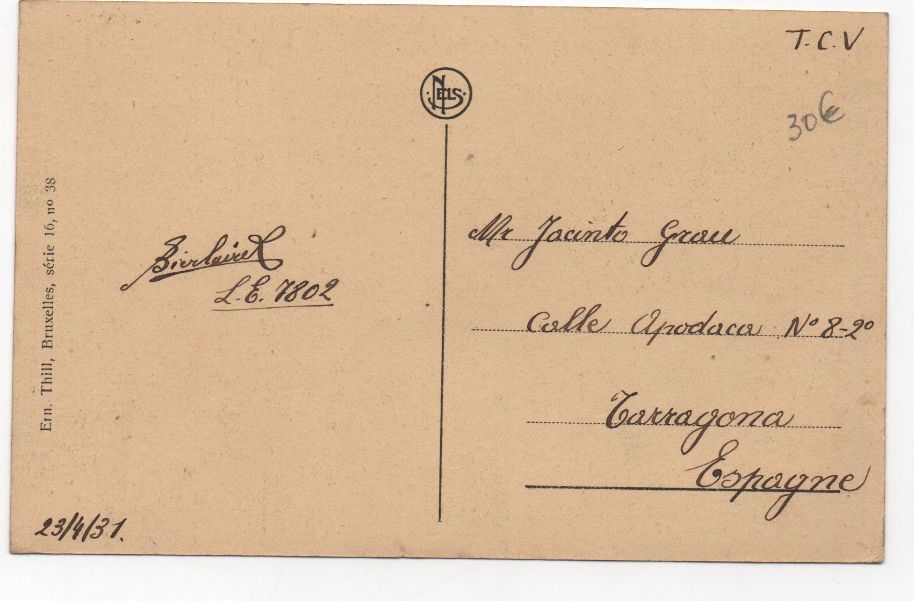 T.C.V
30€
NELS
Ern. Thill, Bruxelles, série 16, no 38
Bierlaire
L.E. 7802
Mr Jacinto Grau
Calle Apodaca Nº 8-2º
Tarragona
Espagne
23/4/31.